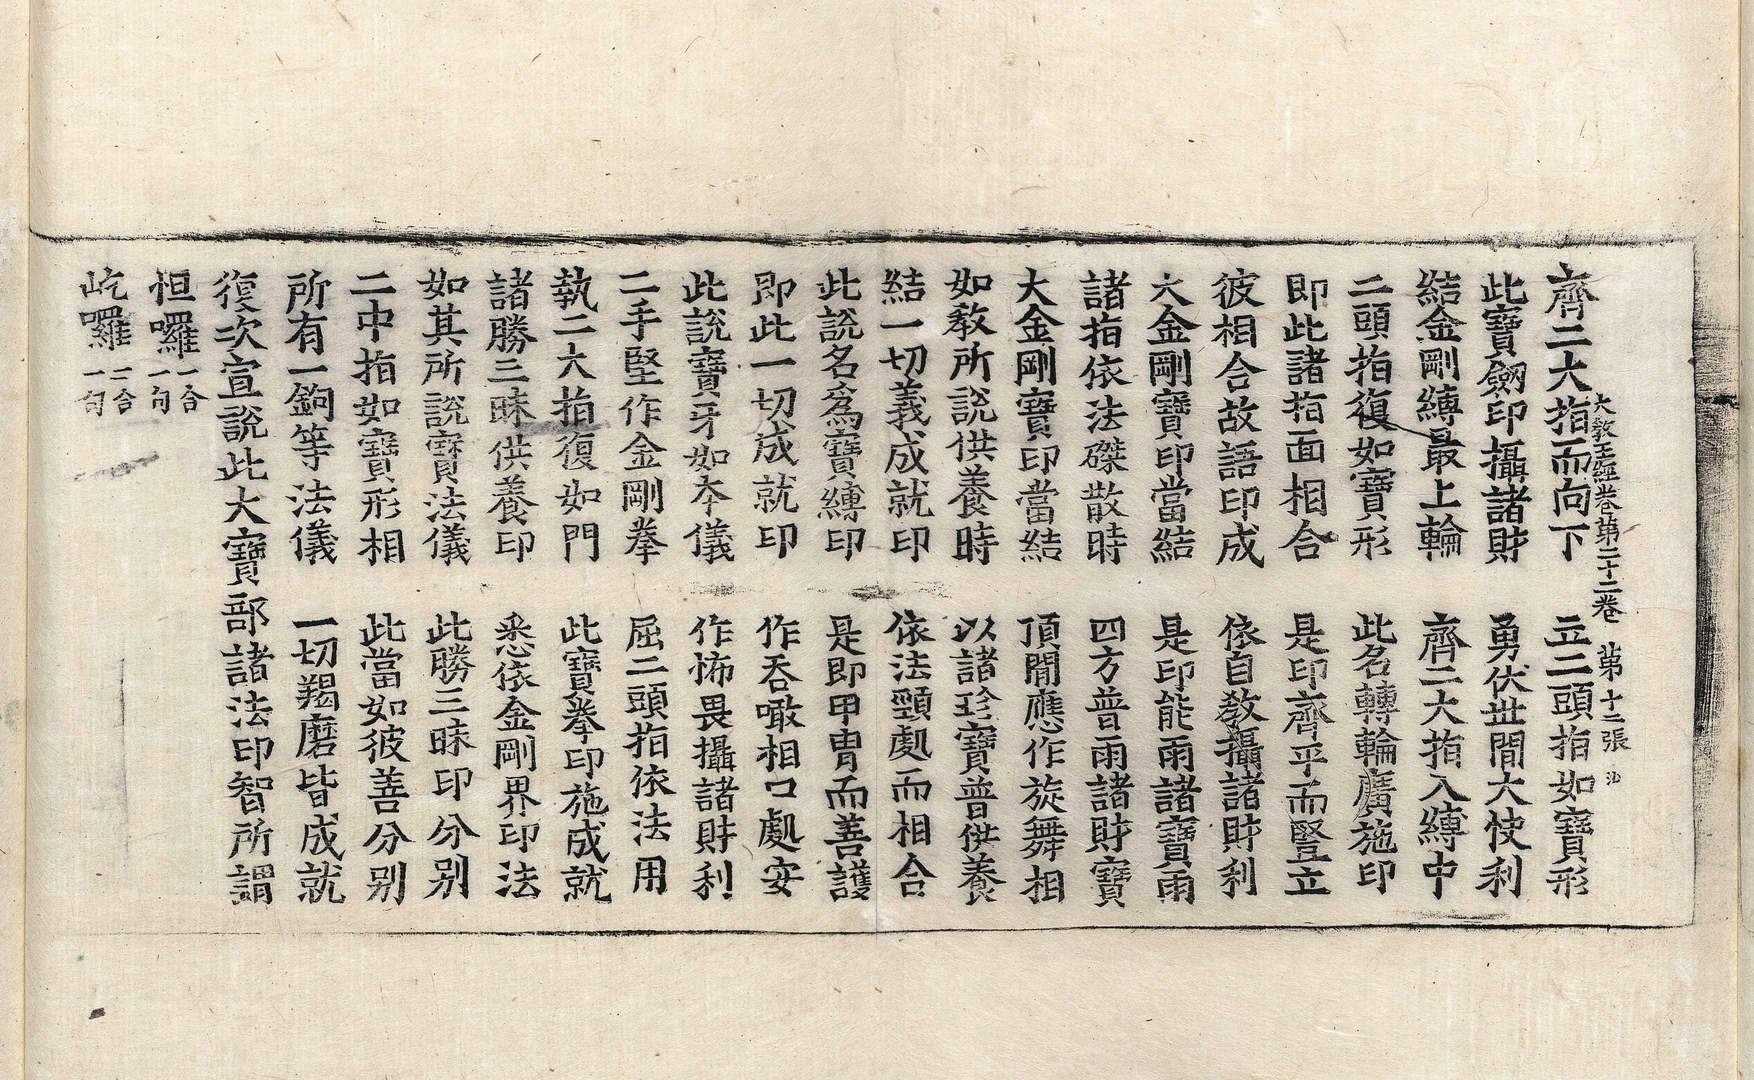 大教王經卷第二十二卷 第十二張 沙
齊二大指而向下 立二頭指如寶形
此寶劒印攝諸財 勇伏世間大快利
結金剛縛最上輪 齊二大指入縛中
二頭指復如寶形 此名轉輪廣施印
即此諸指面相合 是印齊平而豎立
彼相合故語印成 依自教攝諸財利
大金剛寶印當結 是印能雨諸寶雨
諸指依法磔散時 四方普雨諸財寶
大金剛寶印當結 頂間應作旋舞相
如教所說供養時 以諸珍寶普供養
結一切義成就印 依法頸處而相合
此說名為寶縛印 是即甲冑而善護
即此一切成就印 作吞噉相口處安
此說寶牙如本儀 作怖畏攝諸財利
二手堅作金剛拳 屈二頭指依法用
執二大指復如門 此寶拳印施成就
諸勝三昧供養印 悉依金剛界印法
如其所說寶法儀 此勝三昧印分別
二中指如寶形相 此當如彼善分別
所有一鉤等法儀 一切羯磨皆成就
復次宣說此大寶部諸法印智所謂
怛囉一合一句
屹囉二合一句